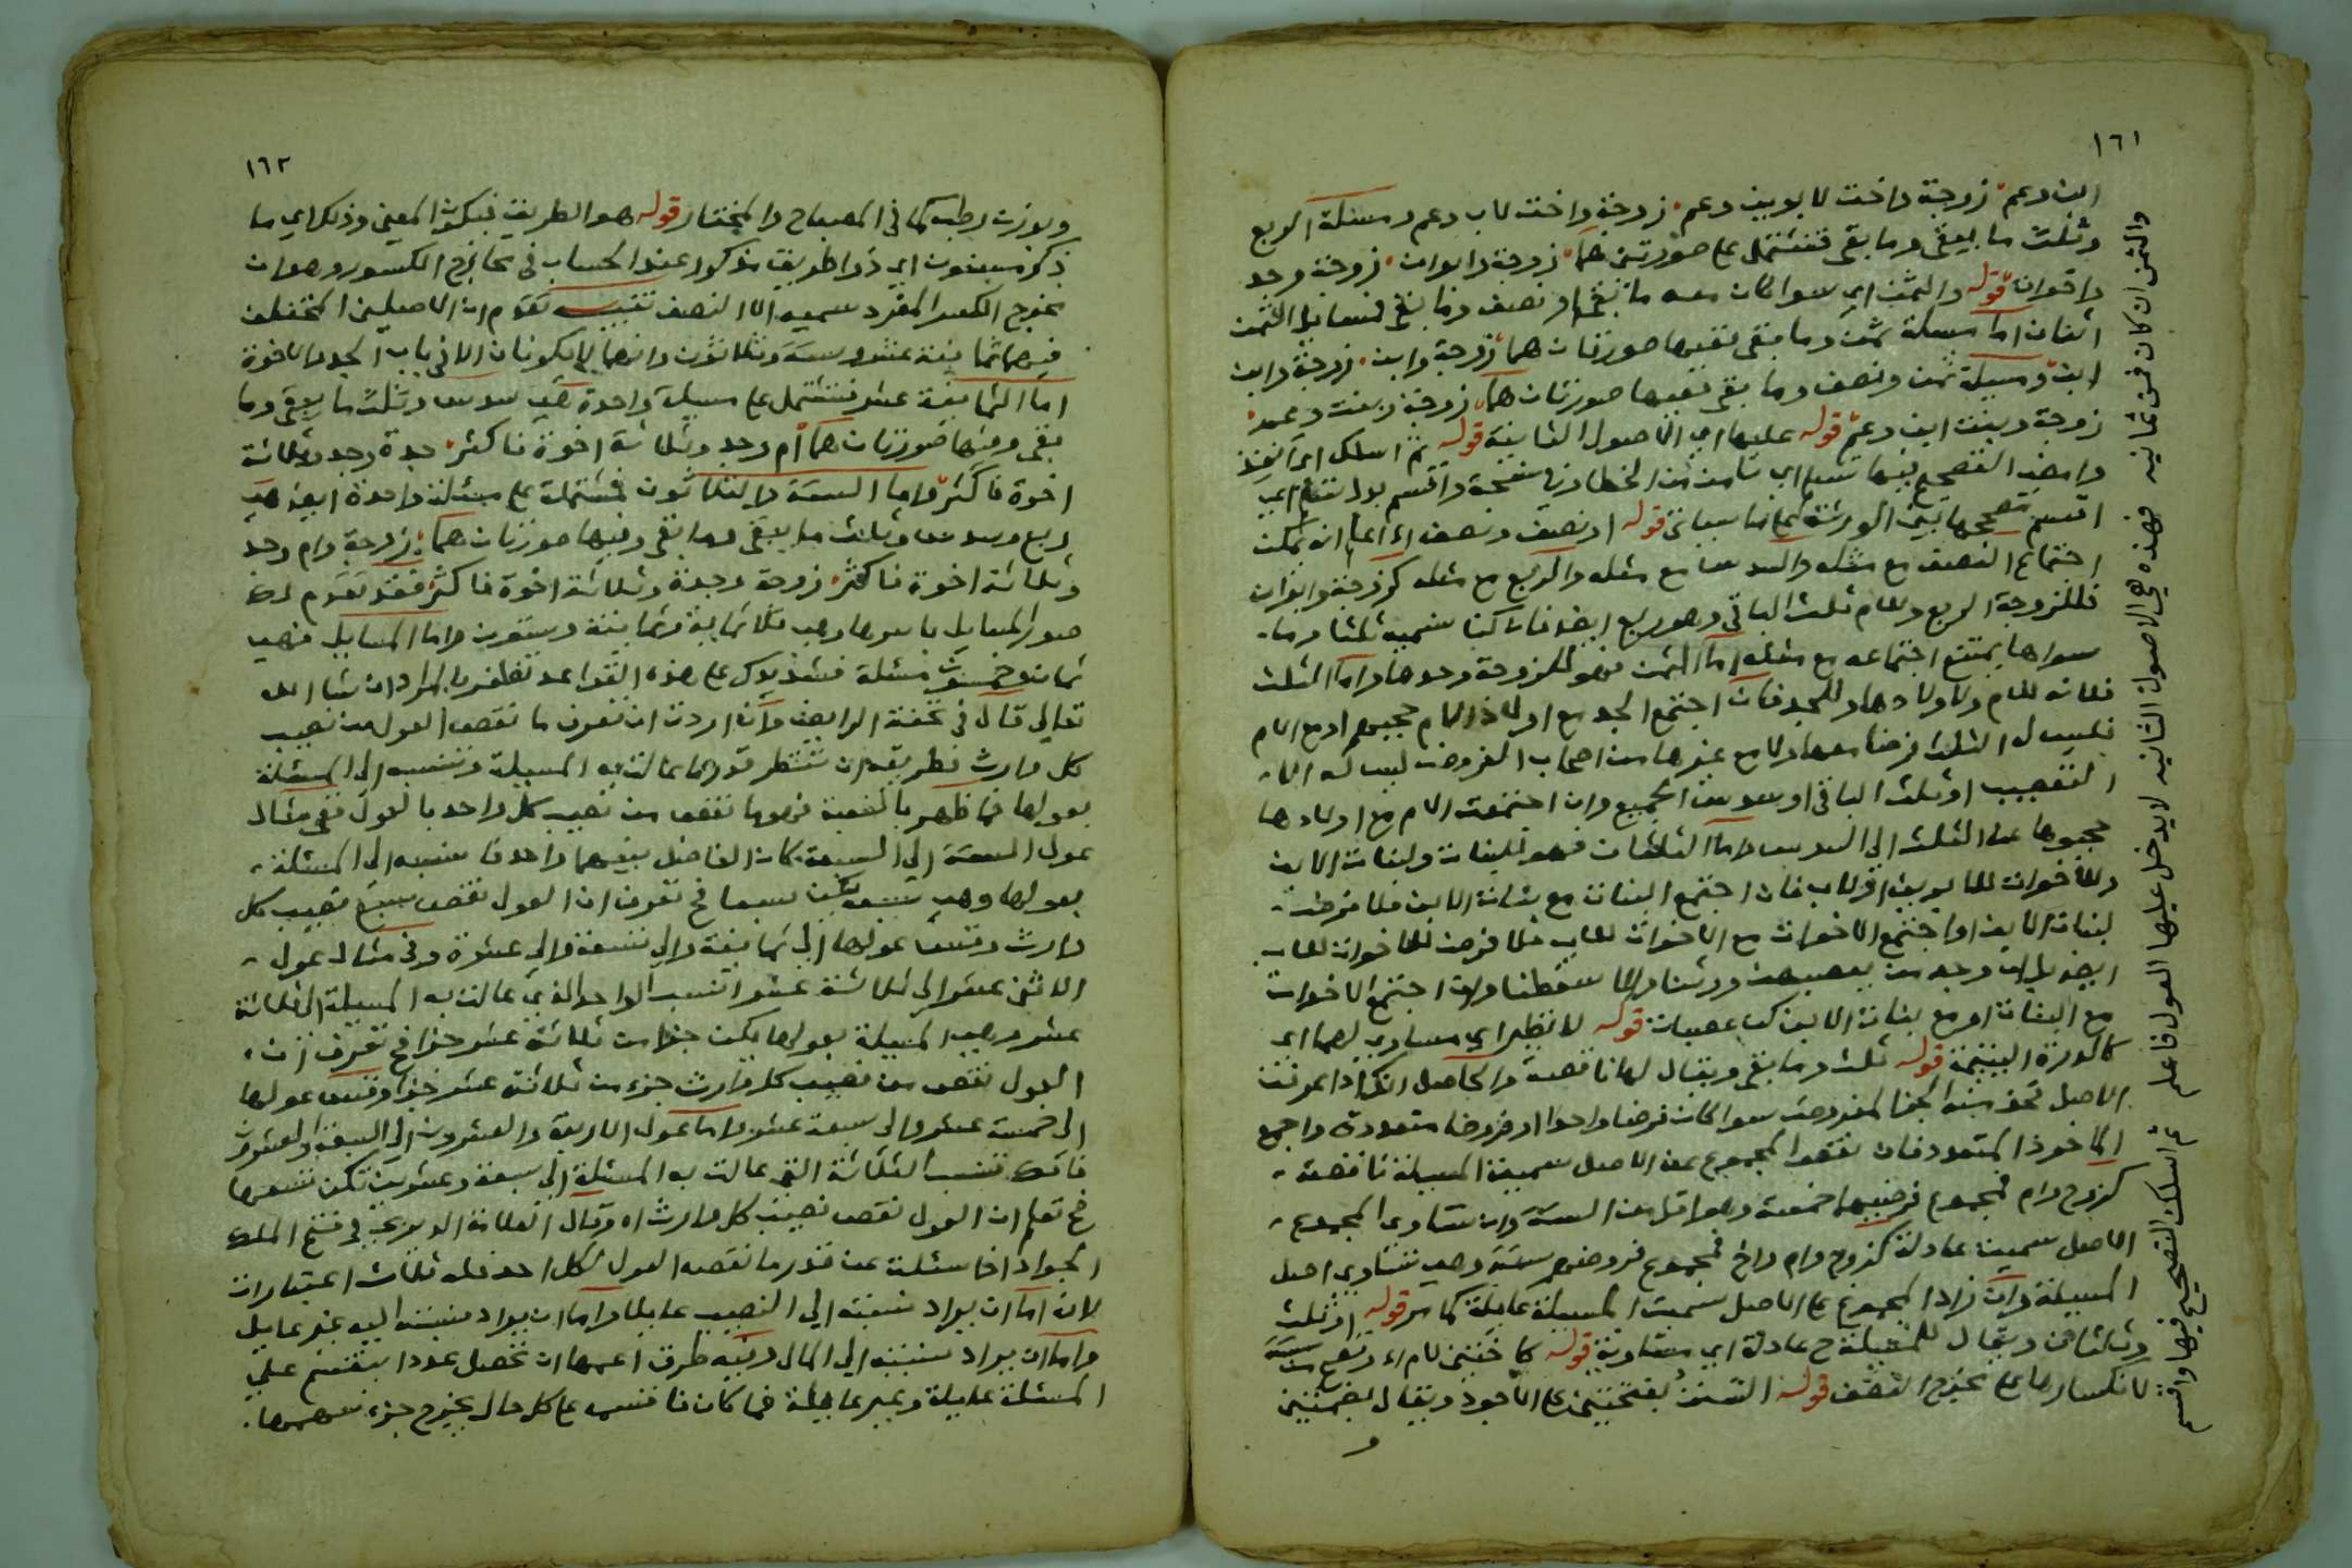 ١٦١
ابن وعم زوجة واخت لابوين وعم زوجة واخت لاب وعم ومسئلة الربع
وثلث ما يبقى وما بقى فتشتمل على صورتين هما زوجة وابوان زوجة وجد
واخوان قوله والثمن اي سوا كان معه ما بقى او نصف وما بقى فمسايل الثمن
اثنان اما مسيلة ثمن وما بقى ففيها صورتان هما زوجة وابن زوجة وابن
ابن ومسيلة ثمن ونصف وما بقى ففيها صورتان هما زوجة وبنت وعم
زوجة وبنت ابن وعم قوله عليها اي الاصول الثانية قوله ثم اسلك اي انفذ
وامض التصحيح فيها تسلم اي تامن من الخطا واقسم اي
اقسم مصححها بين الورثة قوله او نصف ونصف اي انه يمكن
اجتماع النصف مع مثله والسدس مع مثله والربع مع مثله كزوجة وابوان
فللزوجة الربع وللام ثلث الباقي وهو ربع ايضا كنا نسميه ثلثا وما
سواها يمتنع اجتماعه مع مثله اما الثمن فهو للزوجة وحدها واما الثلث
فلانه للام ولاولادها وللجد فان اجتمع الجد مع اولاد الام حجبهم او مع الام
فليس له الثلث فرضا معها ولا مع غيرها من اصحاب الفروض ليس له الا
التعصيب او ثلث الباقي او سدس الجميع وان اجتمعت الام مع اولادها
حجبوها عن الثلث الى السدس واما الثلثان فهو للبنات ولبنات الابن
وللاخوات للابوين او لاب فان اجتمع البنات مع بنات الابن فلا فرض
لبنات الابن او اجتمع الاخوات مع الاخوات للاب فلا فرض للاخوات للاب
ايضا بل ان وجد من يعصبهن ورثنا والا سقطنا وان اجتمع الاخوات
مع البنات او مع بنات الابن كن عصبات قوله لا نظير اي مساوي لهما اي
كالدرة اليتيمة قوله ثلث وما بقى ويقال لها ناقصة والحاصل انك اذا عرفت
الاصل فخذ منه الجزا المفروض سوا كان فرضا واحدا او فروضا متعددة واجمع
الماخوذ المتعدد فان نقص المجموع عن الاصل سميت المسيلة ناقصة
كزوج وام فمجموع فرضيهما خمسة وهو اقل من الستة وان تساوى المجموع
الاصل سميت عادلة كزوج وام واخ فمجموع فروضهم ستة وهي تساوي اصل
المسيلة وان زاد المجموع على الاصل سميت المسيلة عايلة كما مر قوله او ثلث
وثلثان ويقال للمسيلة ح عادلة اي متساوية قوله كاختين لام وتصح من ستة
لانكسارها على مخرج النصف قوله السنن بفتحتين على الاجود ويقال بضمتين
و
والثمن ان كان فمن ثمانيه فهذه هي الاصول الثانيه لا يدخل عليها العول فاعلم ثم اسلك التصحيح فيها واقسم
١٦٢
وبوزن رطب كما في المصباح والمختار قوله هو الطريق فيكون المعنى وذلك اي ما
ذكر مسنون اي ذو طريق مذكور عند الحساب في مخارج الكسور وهو ان
مخرج الكسر المفرد سميه الا النصف تنبيه تقدم ان الاصلين المختلف
فيهما ثمانية عشر وستة وثلاثون وانهما لا يكونان الا في باب الجد والاخوة
اما الثمانية عشر فتشتمل على مسيلة واحدة هي سدس وثلث ما يبقى وما
بقى وفيها صورتان هما ام وجد وثلاثة اخوة فاكثر جدة وجد وثلاثة
اخوة فاكثر واما الستة والثلاثون فمشتملة على مسئلة واحدة ايضا هي
ربع وسدس وثلث ما يبقى وما بقى وفيها صورتان هما زوجة وام وجد
وثلاثة اخوة فاكثر زوجة وجدة وثلاثة اخوة فاكثر فقد تقدم لك
صور المسايل باسرها وهي ثلاثماية وثمانية وستون واما المسايل فهي
ثمان وخمسون مسئلة فشد يدك على هذه القواعد تظفر بالمراد ان شا الله
تعالى قال في تحفة الرايض وان اردت ان تعرف ما نقص العول من نصيب
كل وارث فطريقه ان تنظر قدر ما عالت به المسيلة وتنسبه الى المسئلة
بعولها فما ظهر بالنسبة فهو ما نقص من نصيب كل واحد بالعول ففي مثال
عول الستة الى السبعة كان الفاضل بينهما واحدا تنسبه الى المسئلة
بعولها وهي سبعة يكن سبعا فح تعرف ان العول نقص سبع نصيب كل
وارث وقس عولها الى ثمانية والى تسعة والى عشرة وفي مثال عول
الاثنى عشر الى ثلاثة عشر انسب الواحد الذي عالت به المسيلة الى ثلاثة
عشر وهي المسيلة بعولها يكن جزا من ثلاثة عشر جزا فح تعرف ان
العول نقص من نصيب كل وارث جزء من ثلاثة عشر جزا وقس عولها
الى خمسة عشر والى سبعة عشر واما عول الاربعة والعشرون الى السبعة والعشرون
فانك تنسب الثلاثة التي عالت به المسئلة الى سبعة وعشرين تكن تسعها
فح تعلم ان العول نقص نصيب كل وارث اه وقال العلامة في فتح الملك
الجواد اذا سئلت عن قدر ما نقصه العول لكل احد فله ثلاث اعتبارات
لان اما ان يراد نسبته الى النصيب عايلا واما ان يراد نسبته اليه غير عايل
واما ان يراد نسبته الى المال وفيه طرق اعمها ان تحصل عددا ينقسم على
المسئلة عايلة وغير عايلة فما كان فاقسمه على كل حال يخرج جزء سهمها